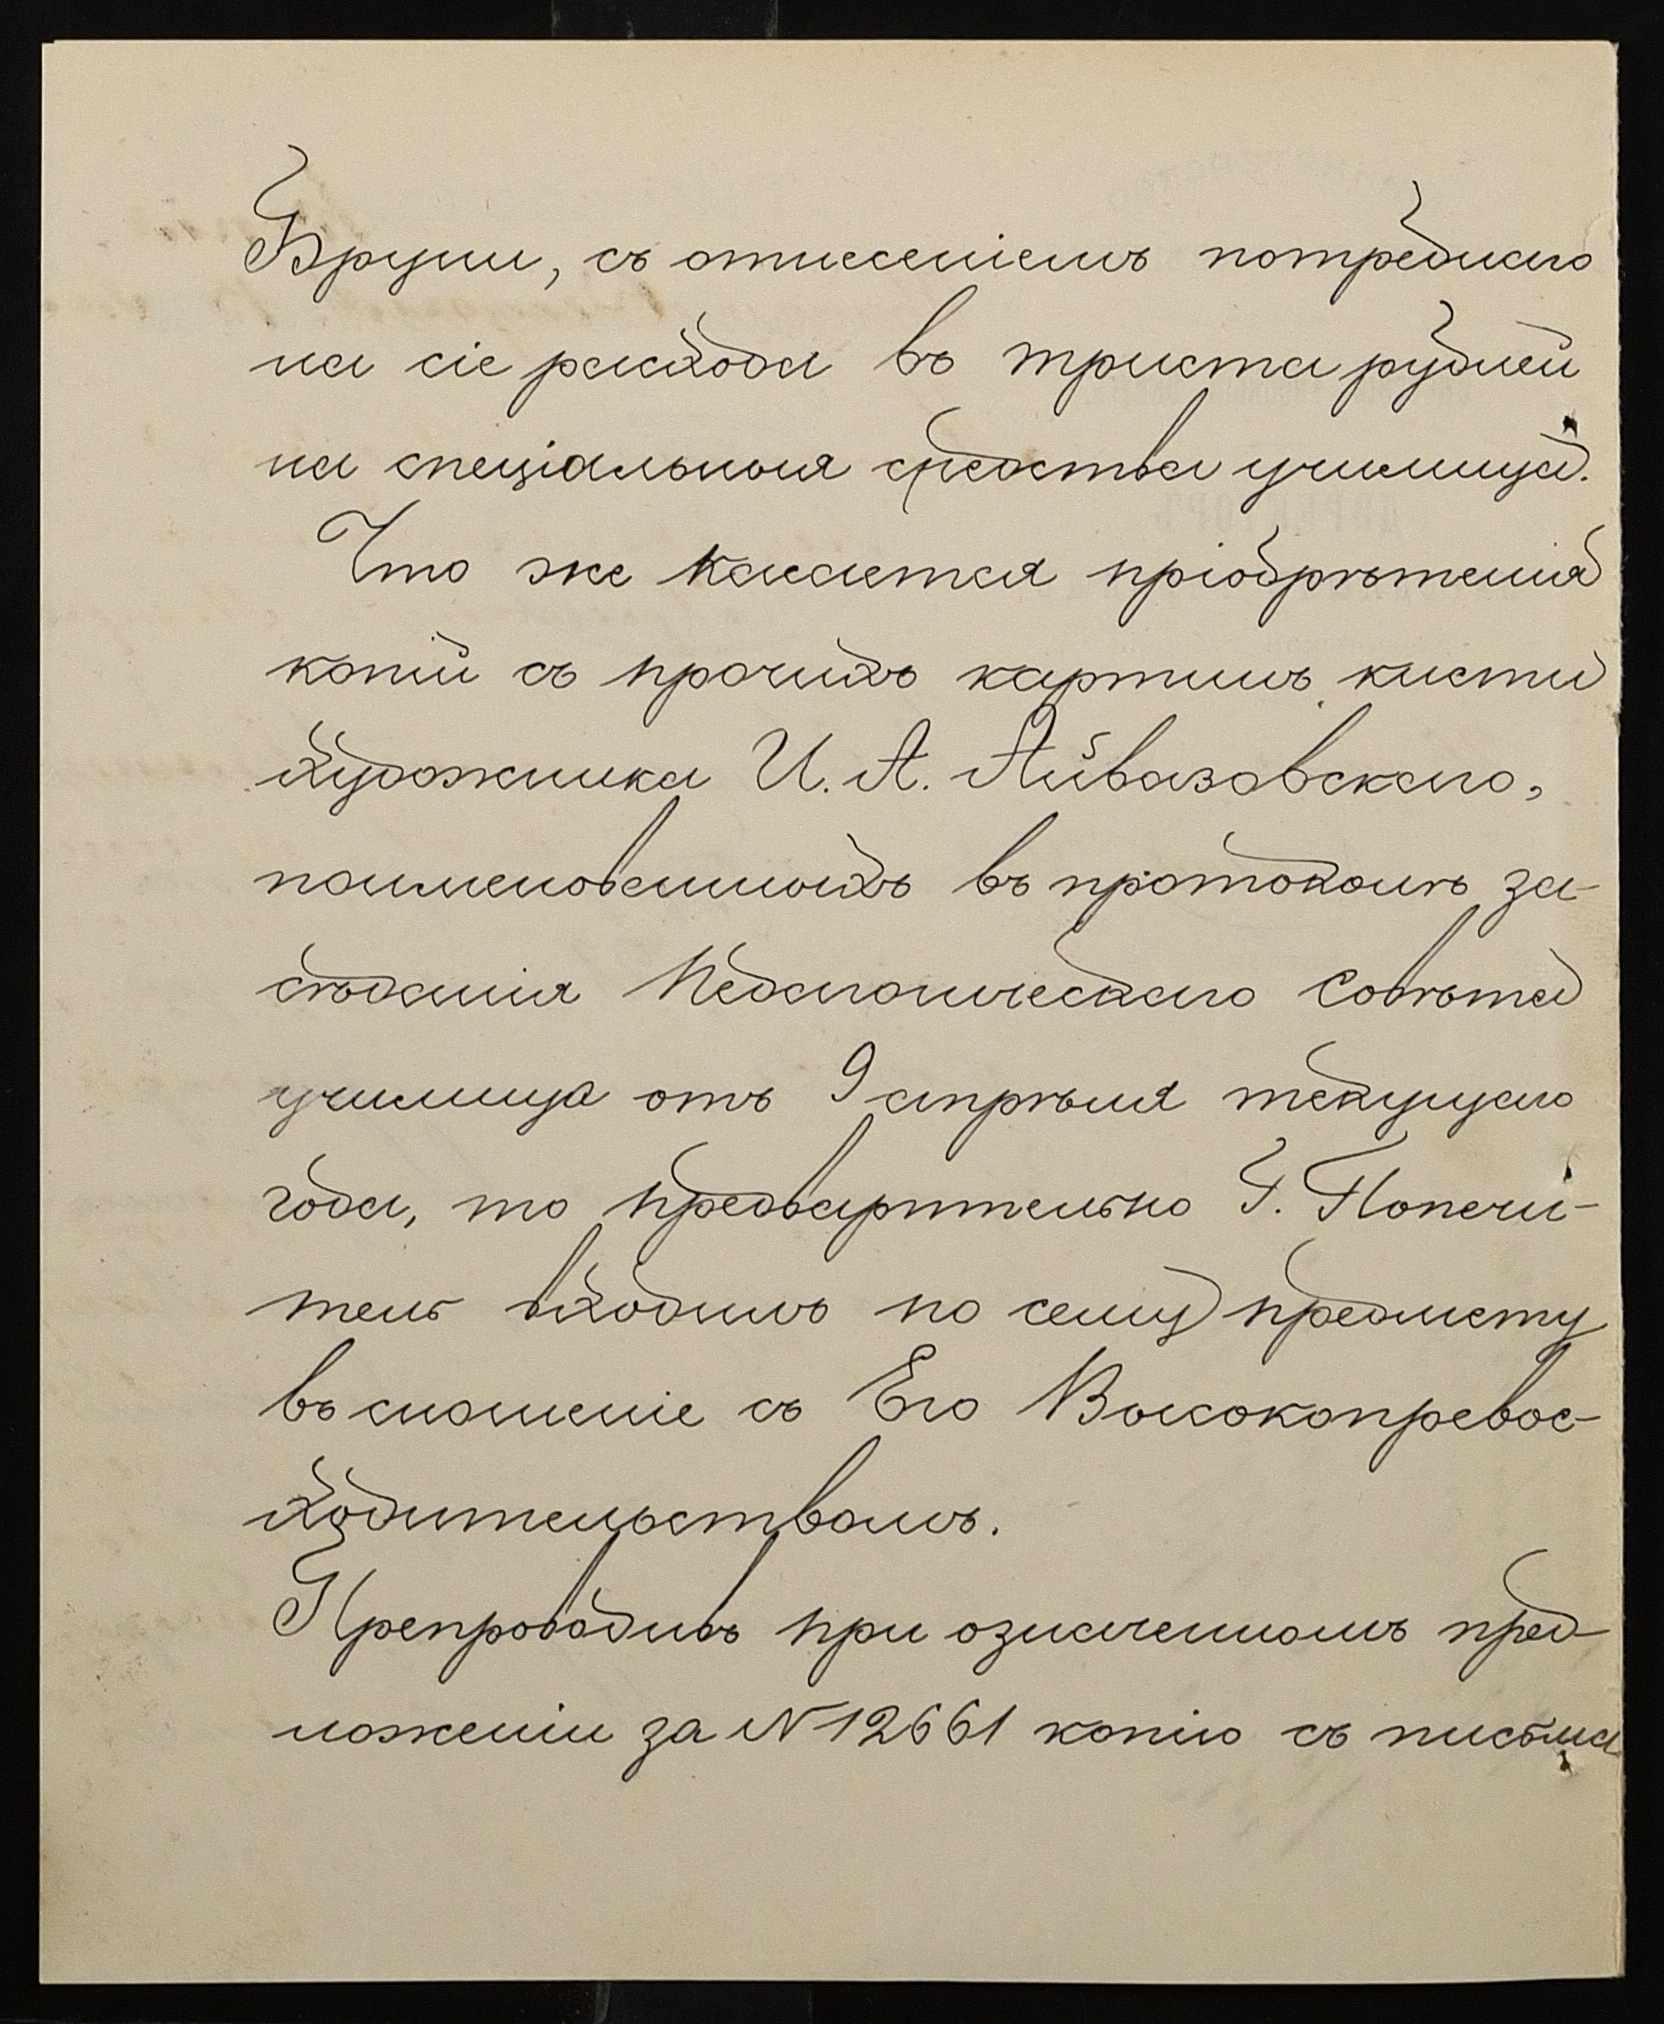 Бруни, съ отнесеніемъ потребнаго
на сіе расхода въ триста рублей
на спеціальныя средства училища.
Что же касается пріобрѣтенія
копій съ прочихъ картинъ кисти
художника И. А. Айвазовскаго,
поименованныхъ въ протоколѣ за-
сѣданія Педагогическаго Совѣта
училища отъ 9 апрѣля текущаго
года, то предварительно Г. Попечи-
тель входилъ по сему предмету
въ сношеніе съ Его Высокопревос-
ходительствомъ.
Препроводивъ при означенномъ пред-
ложеніи за № 12661 копію съ письма